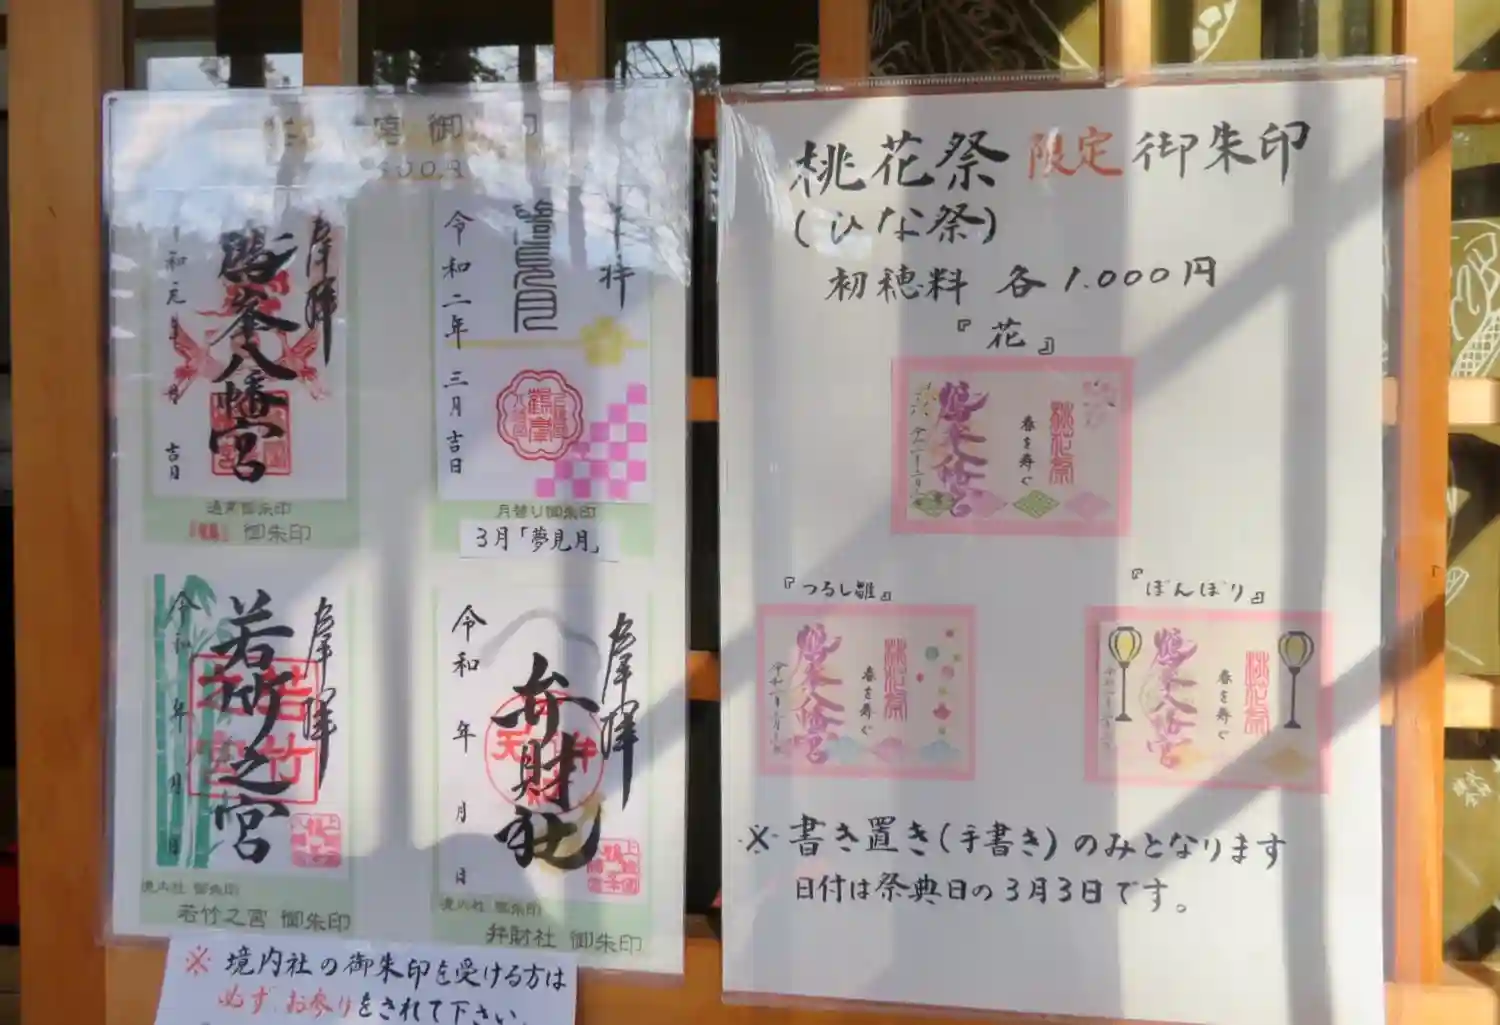 宮 御
奉拝
鶴峯八幡宮
吉月
通常御朱印
御朱印
奉拝
夢見月
令和二年 三月吉日
月替り御朱印
3月「夢見月」
奉拝
若竹之宮
令和 年 月 日
境内社 御朱印
若竹之宮 御朱印
奉拝
弁財社
令和 年 月 日
境内社 御朱印
弁財社 御朱印
※境内社の御朱印を受ける方は
必ずお参りをされて下さい。
桃花祭 限定 御朱印
(ひな祭)
初穂料 各1.000円
『花』
桃花祭
春を寿ぐ
『つるし雛』
桃花祭
春を寿ぐ
『ぼんぼり』
桃花祭
春を寿ぐ
※書き置き(手書き)のみとなります
日付は祭典日の3月3日です。